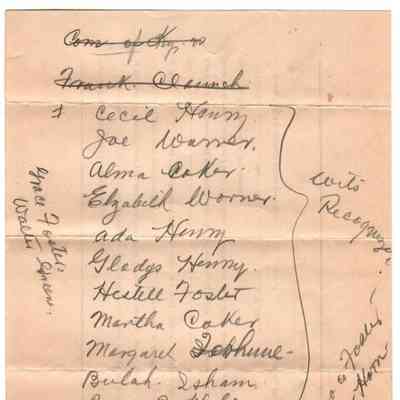 Com of Ky. vs
Frank Claunch
+ Cecil Henry
Joe Warner.
Alma Coker.
Elzabeth Worner.
Ada Henry
Gladys Henny.
Hestell Foster
Martha Coker
Margaret Tebhune-
Bulah. Isham.
Grace Foster.
Walter Green.
wits
Recognize.
Foster
Horn.